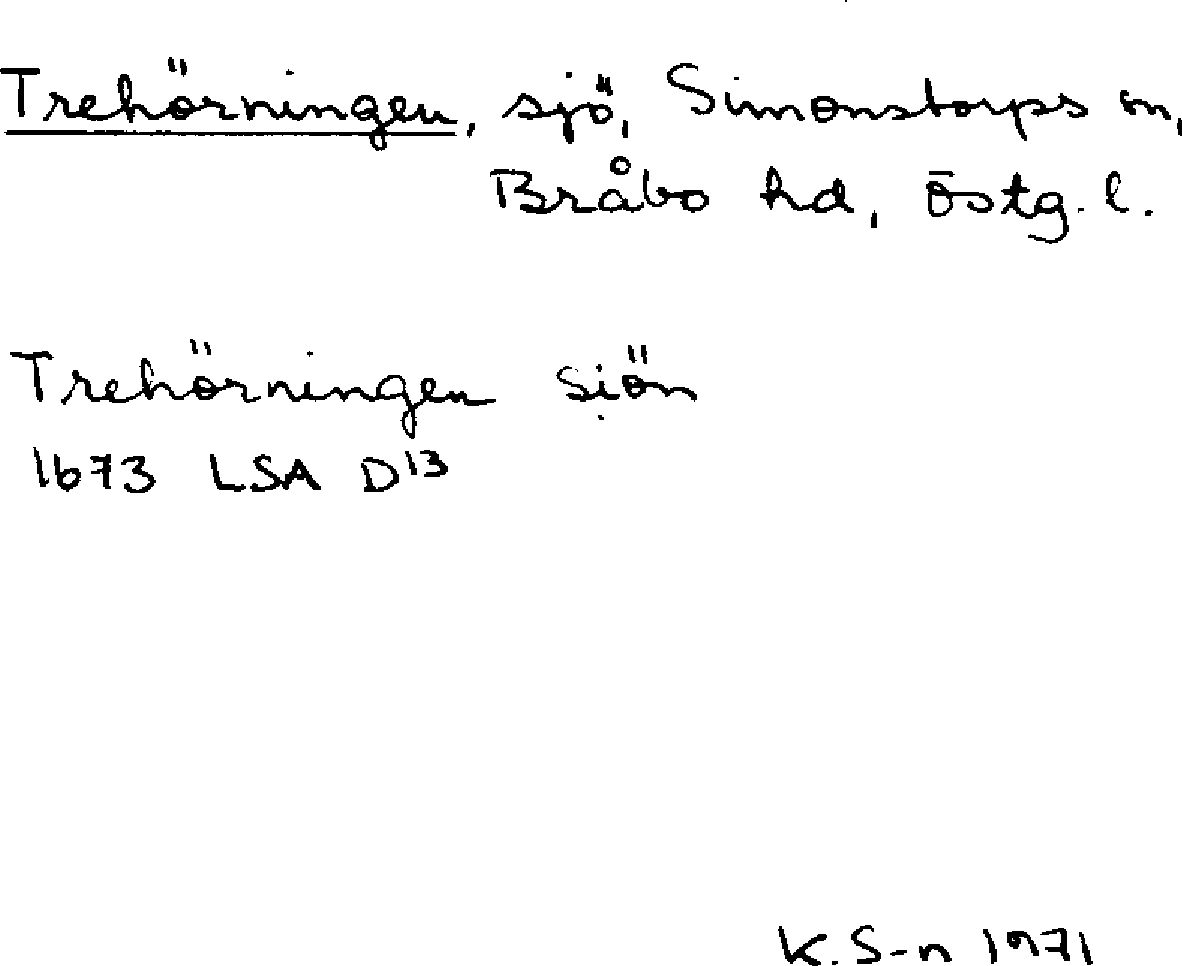 Trehörningen, sjö, Simonstorps sn,
Bråbo hd, Östg. l.
Trehörningen Siön
1673 LSA D13
K. S-n 1971